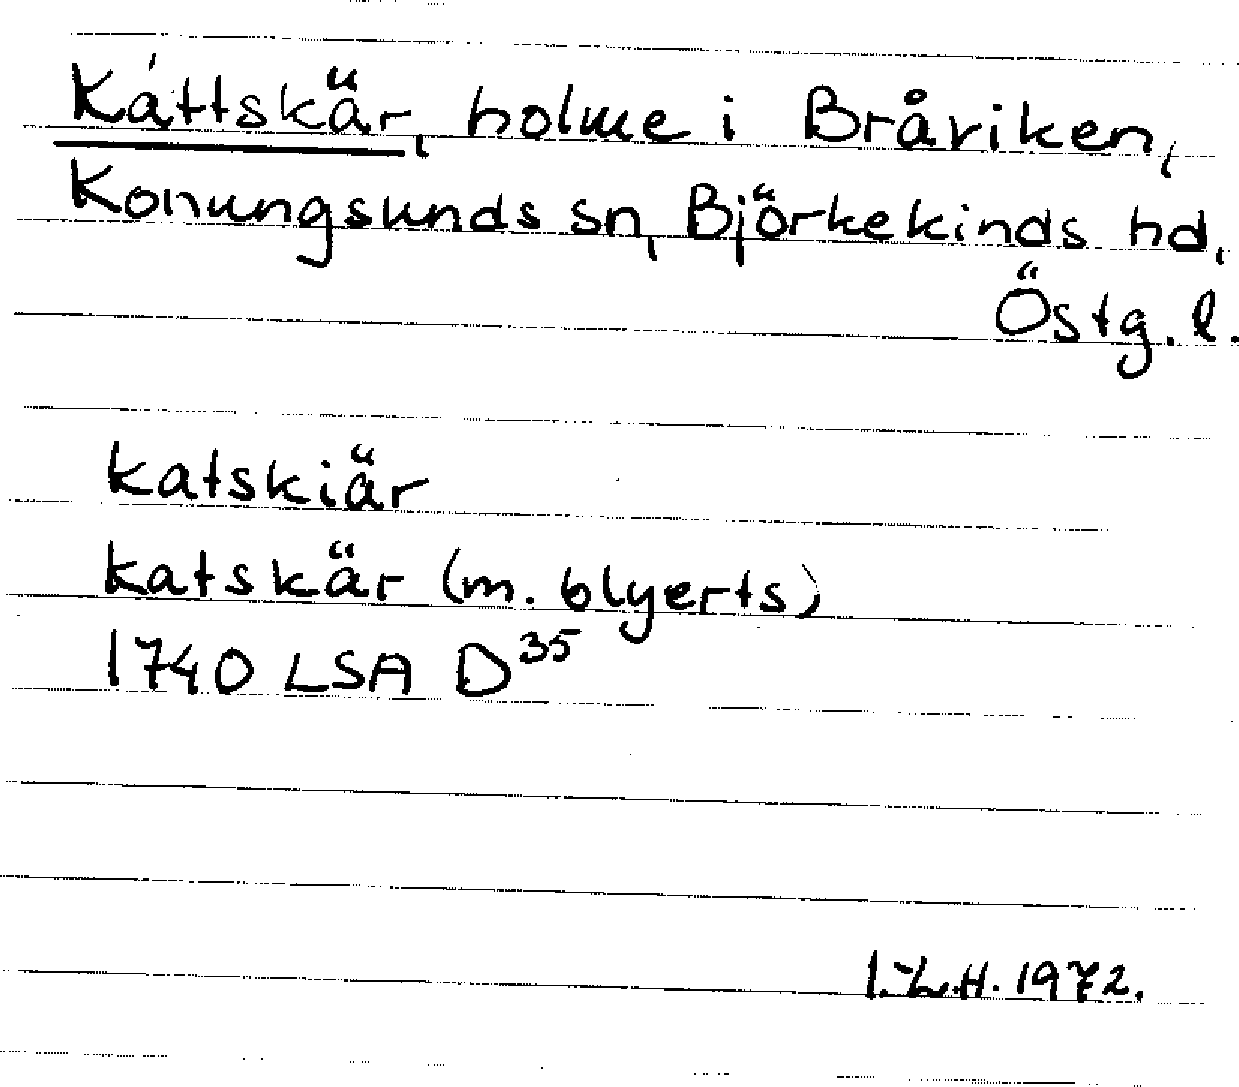 Káttskär, holme i Bråviken,
Konungsunds sn, Björkekinds hd,
Östg. l.
katskiär
katskär (m. blyerts)
1740 LSA D³⁵
I.L.H. 1972.